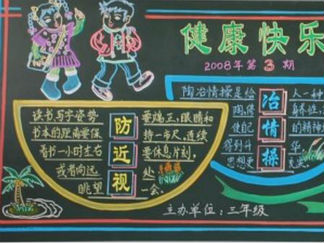 健康快乐
2008年第3期
读书写字姿势
书本的距离要保
看书一小时左右
或者向远
眺望
防近视
要端正,眼睛和
持一市尺,连续
要休息片刻,
处
一会。
陶冶情操是给
陶
使
得
思想更
冶情操
人一种
的精神
主办单位:三年级